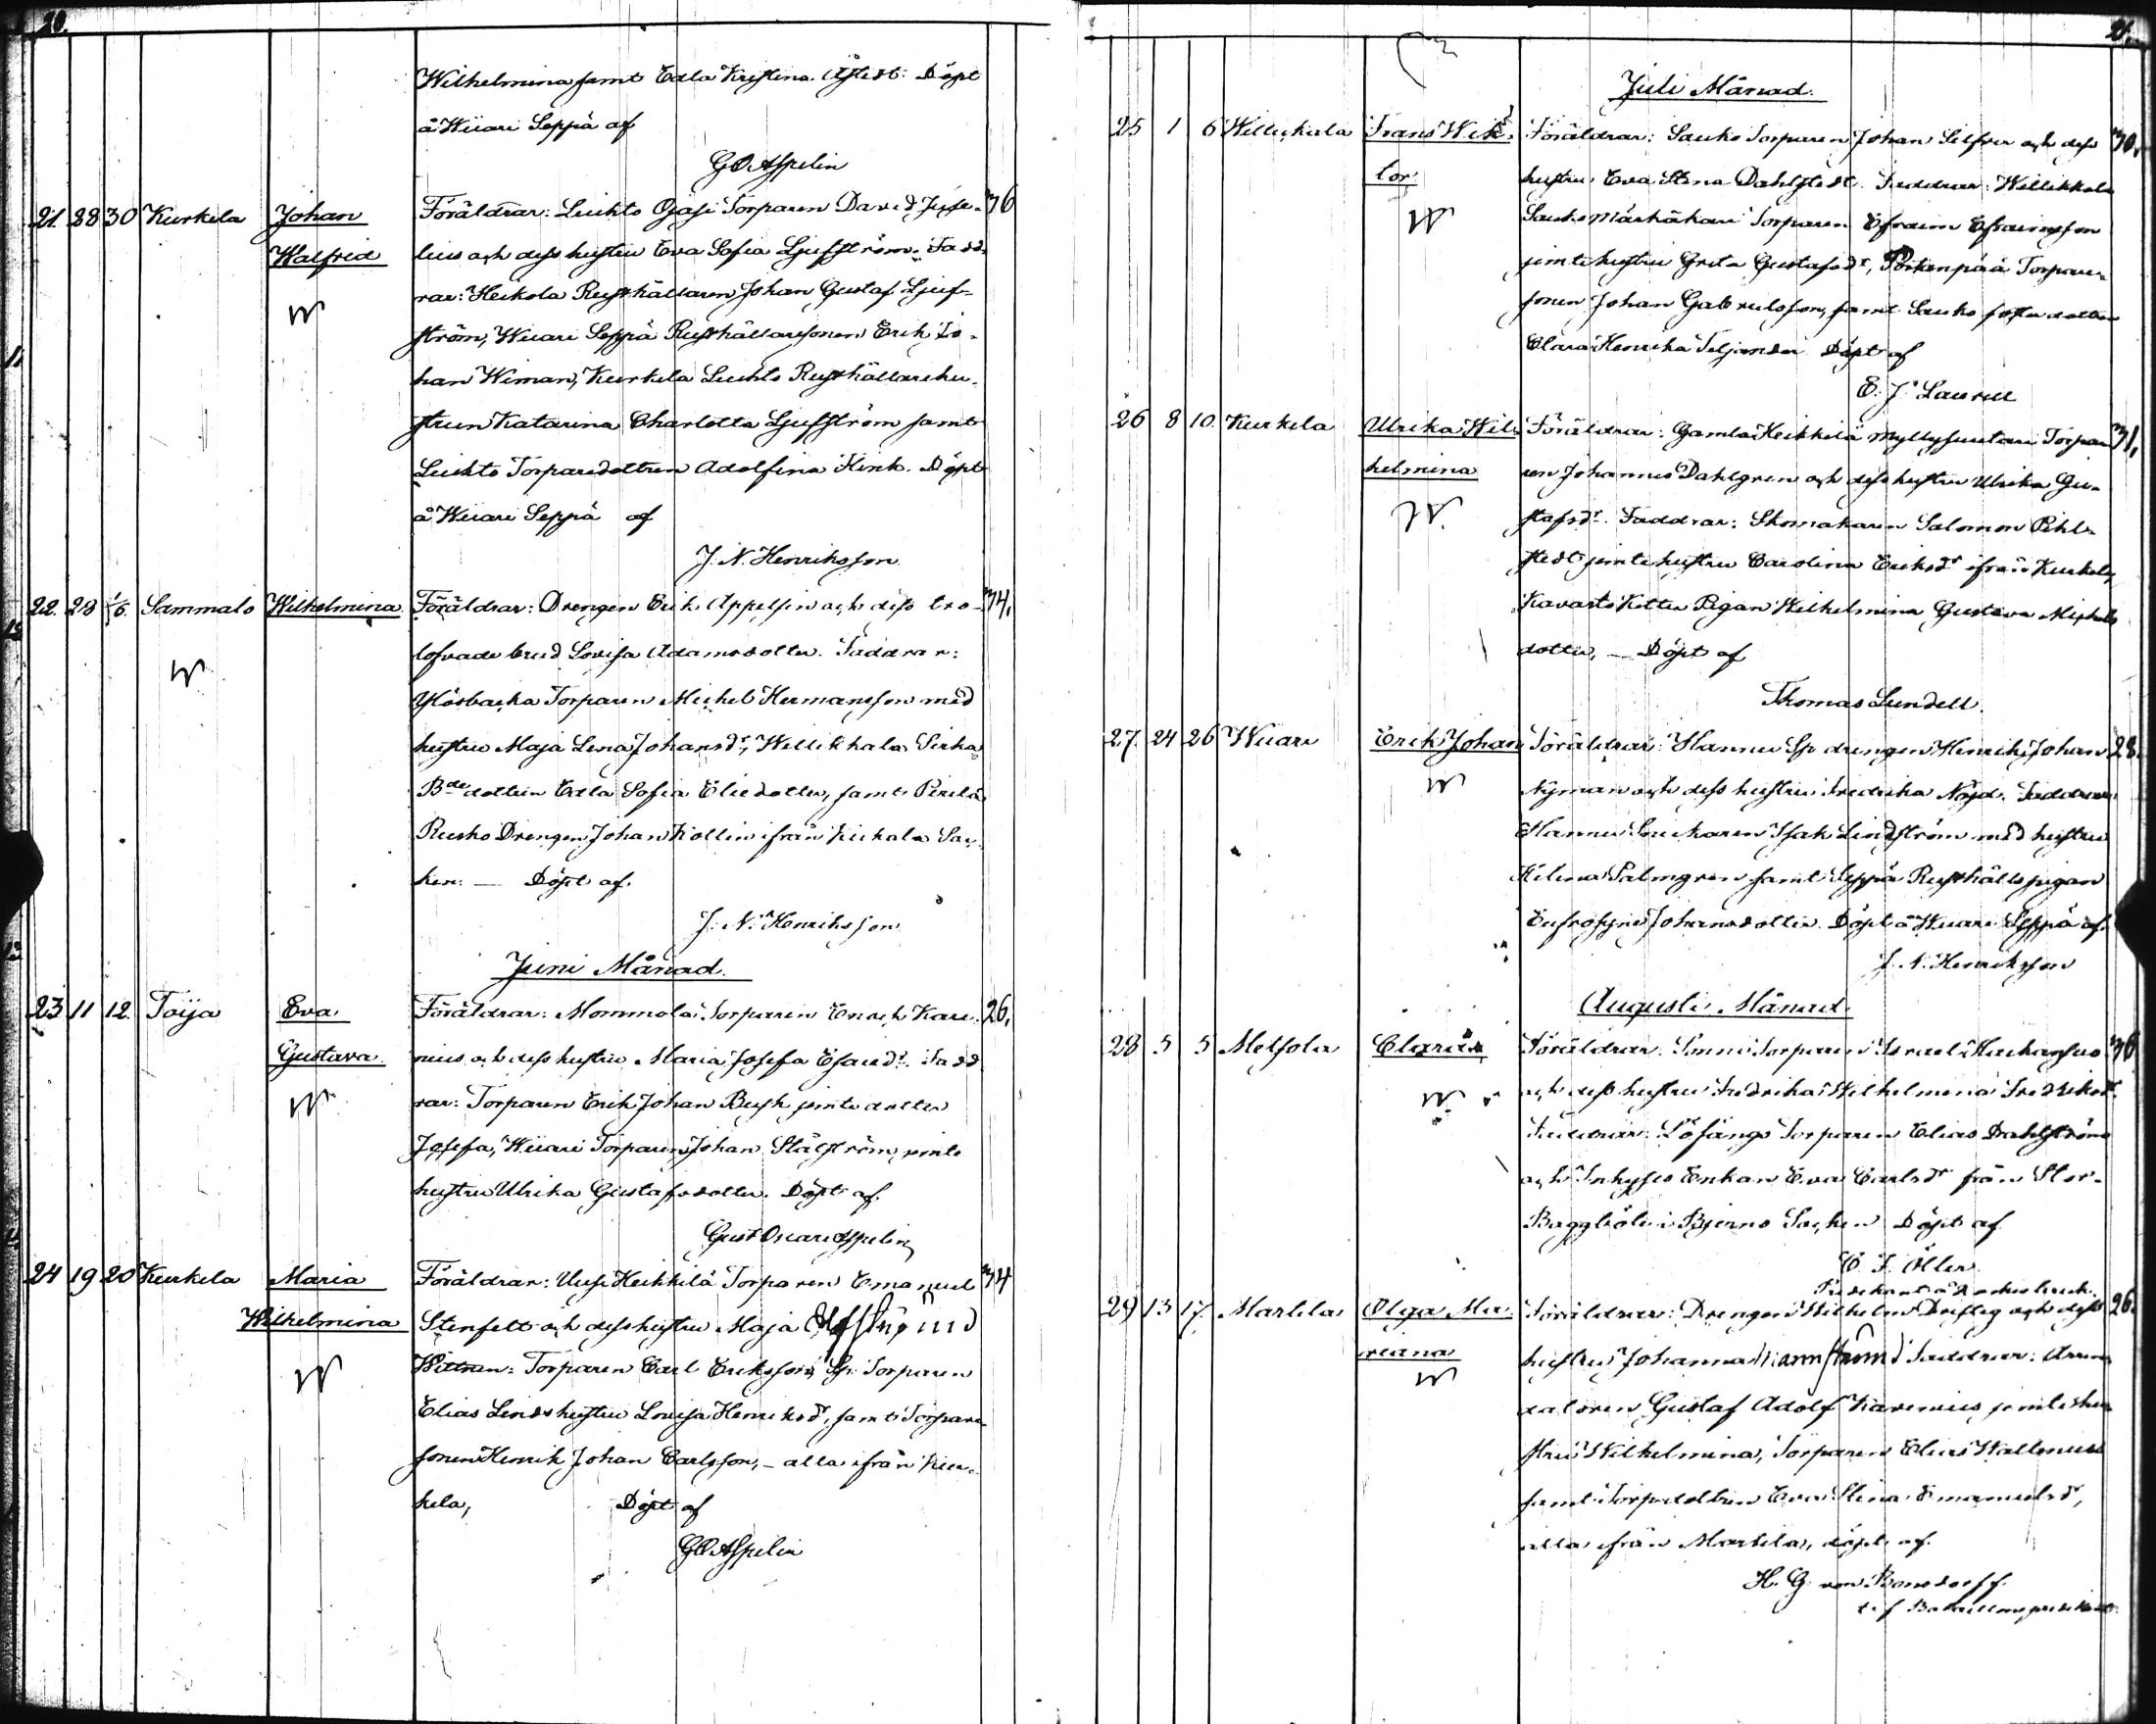 20.
Wilhelmina samt Edla Kristina Öfstedt. Döpt
å Wiiari Seppä af
G O Aspelin
21. 28 30 Kurkela Johan Föräldrar: Leikto Ojasi Torparen David Juse- 36
Walfrid lius och dess hustru Eva Sofia Ljufström. Fadd-
rar: Heikola Rusthållaren Johan Gustaf Ljuf-
ström, Wiiari Seppä Rusthållaresonen Erik Jo-
han Wiman, Kurkela Leikto Rusthållarehu-
strun Katarina Charlotta Ljufström samt
Leikto Torparedottren Adolfina Hink. Döpt
å Wiiari Seppä af
J. N. Henriksson
22. 28 1/6. Sammalo Wilhelmina Föräldrar: Drengen Erik Appelsin och dess tro- 34,
lofvade brud Lovisa Adamsdotter. Faddrar:
Torparen Michel Hermansson med
hustru Maja Lena Johansdr, Willikkala Sirka
Bdedottren Edla Sofia Eliedotter, samt Perilä
Rusko Drengen Johan Kollin ifrån Kiikala Soc-
ken. — Döpt af
J. N. Henriksson
Juni Månad.
23 11 12. Toija Eva Föräldrar: Mommola Torparen Enoch Kare- 26,
Gustava nius och dess hustru Maria Josefa Esaiedr. Fadd
rar: Torparen Erik Johan Busk jemte dotter
Josefa, Wiiari Torparen Johan Stålström jemte
hustru Ulrika Gustafsdotter. Döpt af
Gust Oscar Aspelin
24 19 20 Kurkela Maria Föräldrar: Uusi Heikkilä Torparen Emanuel 34
Wilhelmina Stenfelt och dess hustru Maja
Wittnen: Torparen Carl Eriksson, Sp. Torparen
Elias Linds hustru Lovisa Henriksdr, samt Torpare-
sonen Henrik Johan Carlsson, — alla ifrån Kur-
kela, Döpt af
G O Aspelin
21.
Juli Månad.
25 1 6 Willikkala Frans Wik- Föräldrar: Sauko Torparen Johan Silfver och dess 30,
tor hustru Eva Stina Dahlstedt. Faddrar: Willikkala
Sauko Märkäkari Torparen Efraim Efraimsson
jemte hustru Greta Gustafsdr, Torpare-
sonen Johan Gabrielsson, samt Sauko fosterdotter
Clara Henrika Seljander Döpt af
E. J. Laurell
26 8 10 Kurkela Ulrika Wil- Föräldrar: Gamla Heikkilä Myllysuutari Torpar- 31,
helmina en Johannes Dahlgren och dess hustru Ulrika Gu-
stafsdr. Faddrar: Skomakaren Salomon Pihl-
stedt jemte hustru Carolina Eriksdr ifrån Kurkela
Kavasto Kotter Pigan Wilhelmina Gustava Michels
dotter, — Döpt af
Thomas Lundell.
27. 24 26 Wiiari Erik Johan Föräldrar: Hannu Sp drengen Henrik Johan 28.
Nyman och dess hustru Fredrika Nöjd. Faddrar:
Hannu Isak Lindström med hustru
Helena Palmgren samt Seppä Rusthållspigan
Eufrosyne Johansdotter. Döpt å Wiiari Seppä af
J. N. Henriksson
Augusti Månad
28 5 5 Melsola Clara Föräldrar: Torparen Israel 36
och dess hustru Fredrika Wilhelmina Fredriksdr.
Faddrar: Löfängs Torparen Elias Dahlström
och Inhyses Enkan Eva Carlsdr från Stor-
Baggböle i Bjerno Socken Döpt af
C. F. Öller
29 13 17. Markila Olga Ma- Föräldrar: Drengen Wilhelm och dess 26.
riana hustru Johanna Faddrar: Arren
datoren Gustaf Adolf Karenius jemte hu
stru Wilhelmina, Torparen Elias Wallenius
samt Torparedottren Eva Stina Emanuelsdr,
alla ifrån Markila, döpt af
H. G. von Bonsdorff
t.f. Bataillonspredikant